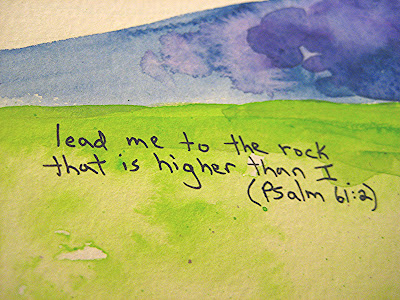 lead me to the rock
that is higher than I.
(Psalm 61:2)